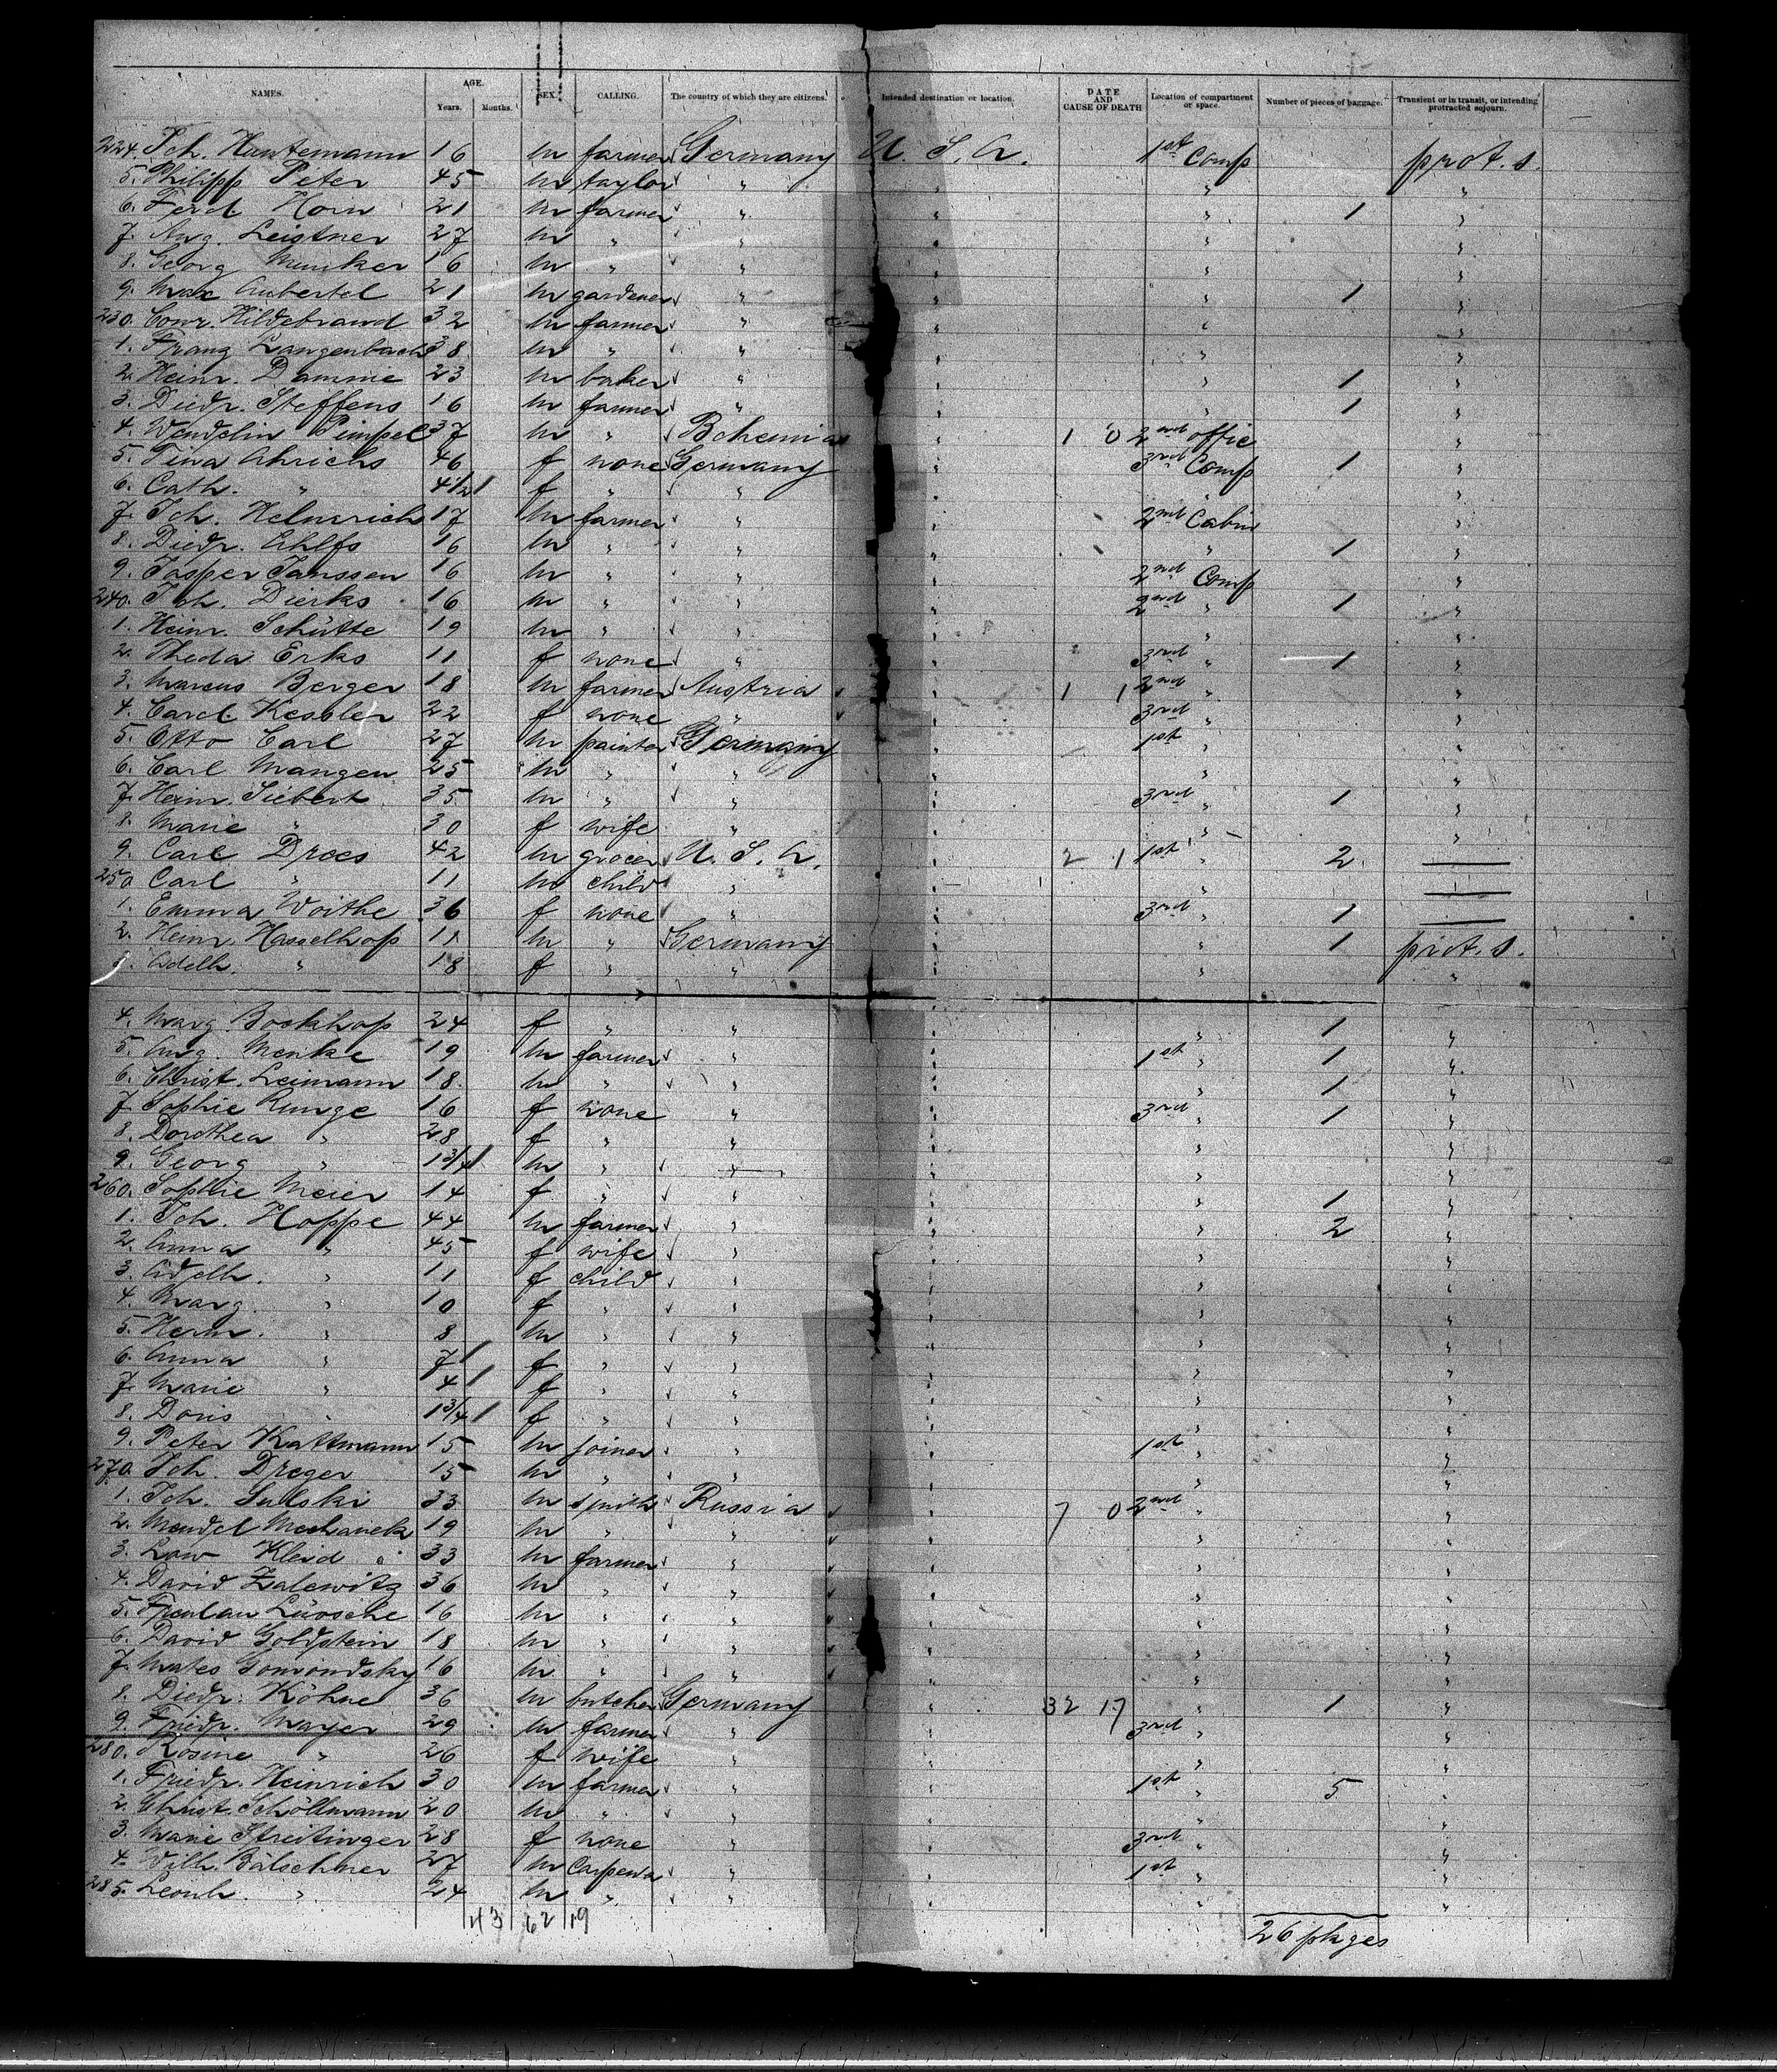 NAMES. AGE. Years. Months. SEX. CALLING. The country of which they are citizens. Intended destination or location. DATE AND CAUSE OF DEATH Location of compartment or space. Number of pieces of baggage. Transient or in transit, or intending protracted sojourn.
224. Joh. Huntemann 16 m farmer Germany U. S. A. 1st Comp prot. s.
5. Philipp Peter 45 m taylor " " " "
6. Ferd. Horn 21 m farmer " " " 1 "
7. Aug. Leistner 27 m " " " " "
8. Georg Munker 16 m " " " " "
9. Max Aubertel 21 m gardener " " " 1 "
230. Conr. Hildebrand 32 m farmer " " " "
1. Franz Langenbach 38 m " " " " "
2. Heinr. Damme 23 m baker " " " 1 "
3. Diedr. Steffens 16 m farmer " " " 1 "
4. Wendelin Pimpel 37 m " Bohemia " 1 0 2nd offic "
5. Tina Ahrichs 46 f none Germany " 3rd Comp 1 "
6. Cath. " 4 1/2 f " " " " "
7. Joh. Helmerichs 17 m farmer " " 2nd Cabin "
8. Diedr. Ahlfs 16 m " " " " 1 "
9. Jasper Janssen 16 m " " " 2nd Comp "
240. Joh. Dierks 16 m " " " 2nd " 1 "
1. Heinr. Schütte 19 m " " " " "
2. Theda Erks 11 f none " " 3rd " 1 "
3. Marcus Berger 18 m farmer Austria " 1 1 2nd " "
4. Carol. Kessler 22 f none " " 3rd " "
5. Otto Carl 27 m painter Germany " 1st " "
6. Carl Mangen 25 m " " " " "
7. Heinr. Siebert 35 m " " " 3rd " 1 "
8. Marie " 30 f wife " " " "
9. Carl Drees 42 m grocer U. S. A. " 2 1 1st " 2
250. Carl " 11 m child " " "
1. Emma Woithe 36 f none " " 3rd " 1
2. Heinr. Hasselhop 11 m " Germany " " 1 prot. s.
3. Adelh. " 18 f " " " " "
4. Marg. Bockhop 24 f " " " 1 "
5. Aug. Menke 19 m farmer " 1st " 1 "
6. Christ. Leimann 18 m " " " 1 "
7. Sophie Runge 16 f none " 3rd " 1 "
8. Dorothea " 28 f " " " "
9. Georg " 1 3/4 m " " " "
260. Sophie Meier 14 f " " " 1 "
1. Joh. Hoppe 44 m farmer " " " 2 "
2. Anna " 45 f wife " " " "
3. Adelh. " 11 f child " " " "
4. Marg. " 10 f " " " " "
5. Herm. " 8 m " " " " "
6. Anna " 7 f " " " " "
7. Marie " 4 f " " " " "
8. Doris " 1 3/4 f " " " " "
9. Peter Kattmann 15 m joiner " " 1st " "
270. Joh. Dreger 15 m " " " " "
1. Joh. Sulski 33 m smith Russia " 7 0 2nd " "
2. Mendel Mechanek 19 m " " " " "
3. Low Kleid 33 m farmer " " " "
4. David Zalewitz 36 m " " " " "
5. 16 m " " " " "
6. David Goldstein 18 m " " " " "
7. Mates Gomondsky 16 m " " " " "
8. Diedr. Köhne 36 m butcher Germany " 32 17 " 1 "
9. Friedr. Mayer 29 m farmer " " 3rd " "
280. Rosine " 26 f wife " " " "
1. Friedr. Heinrich 30 m farmer " " 1st " 5 "
2. Christ. Schöllmann 20 m " " " " "
3. Marie Streitinger 28 f none " " 3rd " "
4. Wilh. Bälschner 27 m Carpenter " " 1st " "
285. Leonh. " 24 m " " " " "
43 62 19 26 pkges